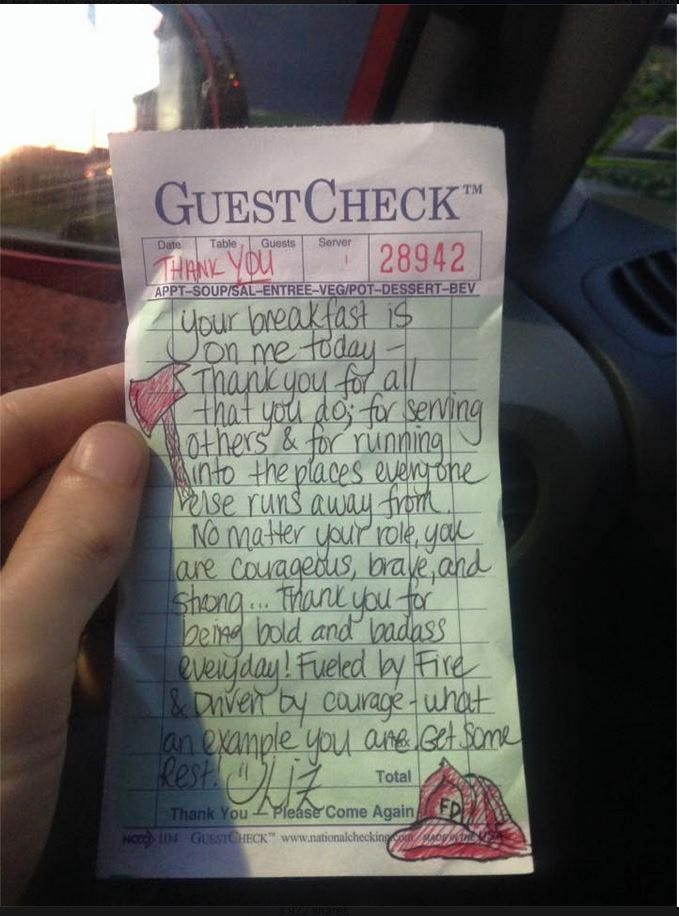 GUESTCHECK™
Date Table Guests Server
THANK YOU 28942
APPT–SOUP/SAL–ENTREE–VEG/POT–DESSERT–BEV
your breakfast is
on me today –
Thank you for all
that you do; for serving
others & for running
into the places everyone
else runs away from.
No matter your role, you
are courageous, brave, and
strong... Thank you for
being bold and badass
everyday! Fueled by Fire
& Driven by courage - what
an example you are. Get some
Rest. Liz
Total
Thank You – Please Come Again
FD
104 GUESTCHECK™ www.nationalchecking.com MADE IN THE USA